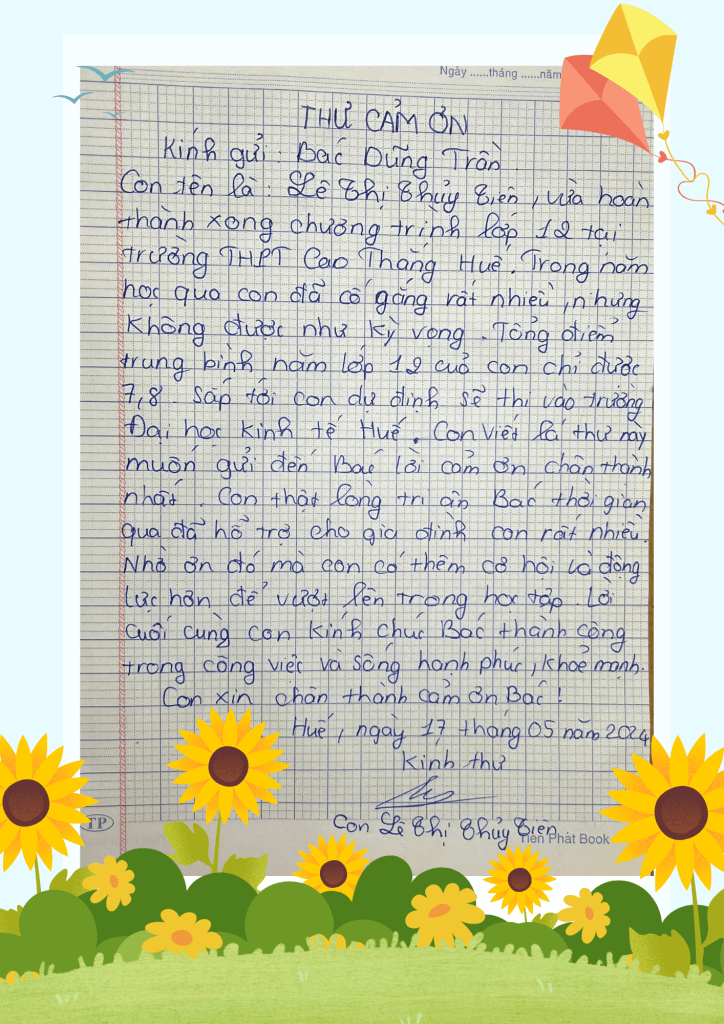 Ngày ......tháng ......năm
THƯ CẢM ƠN
Kính gửi : Bác Dũng Trần
Con tên là : Lê Thị Thủy Tiên , vừa hoàn
thành xong chương trình lớp 12 tại
trường THPT Cao Thắng Huế. Trong năm
học qua con đã cố gắng rất nhiều , nhưng
không được như kỳ vọng . Tổng điểm
trung bình năm lớp 12 của con chỉ được
7,8 . Sắp tới con dự định sẽ thi vào trường
Đại học Kinh tế Huế. Con viết lá thư này
muốn gửi đến Bác lời cảm ơn chân thành
nhất . Con thật lòng tri ân Bác thời gian
qua đã hổ trợ cho gia đình con rất nhiều.
Nhờ ơn đó mà con có thêm cơ hội và động
lực hơn để vượt lên trong học tập . Lời
cuối cùng con kính chúc Bác thành công
trong công việc và sống hạnh phúc , khoẻ mạnh.
Con xin chân thành cảm ơn Bác !
Huế , ngày 17 tháng 05 năm 2024
Kính thư
Con Lê Thị Thủy Tiên
TP
Tiến Phát Book